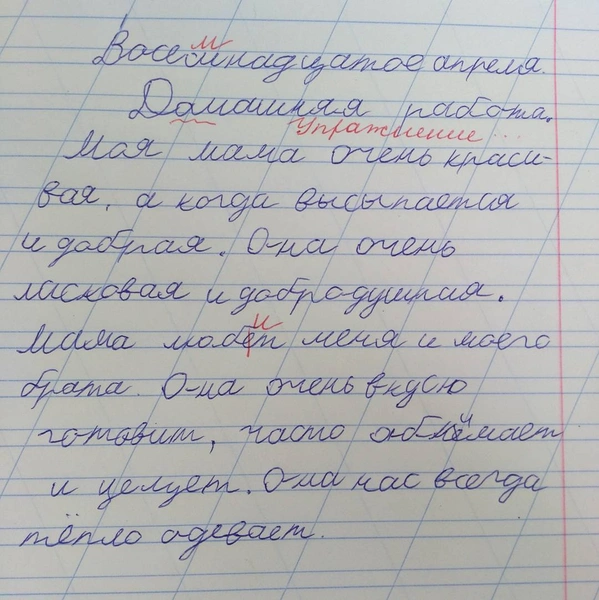 Восемнадцатое апреля.
Домашняя работа.
Упражнение...
Моя мама очень краси-
вая, а когда высыпается
и добрая. Она очень
ласковая и добродушная.
Мама любет меня и моего
брата. Она очень вкусно
готовит, часто обнимает
и целует. Она нас всегда
тёпло одевает.